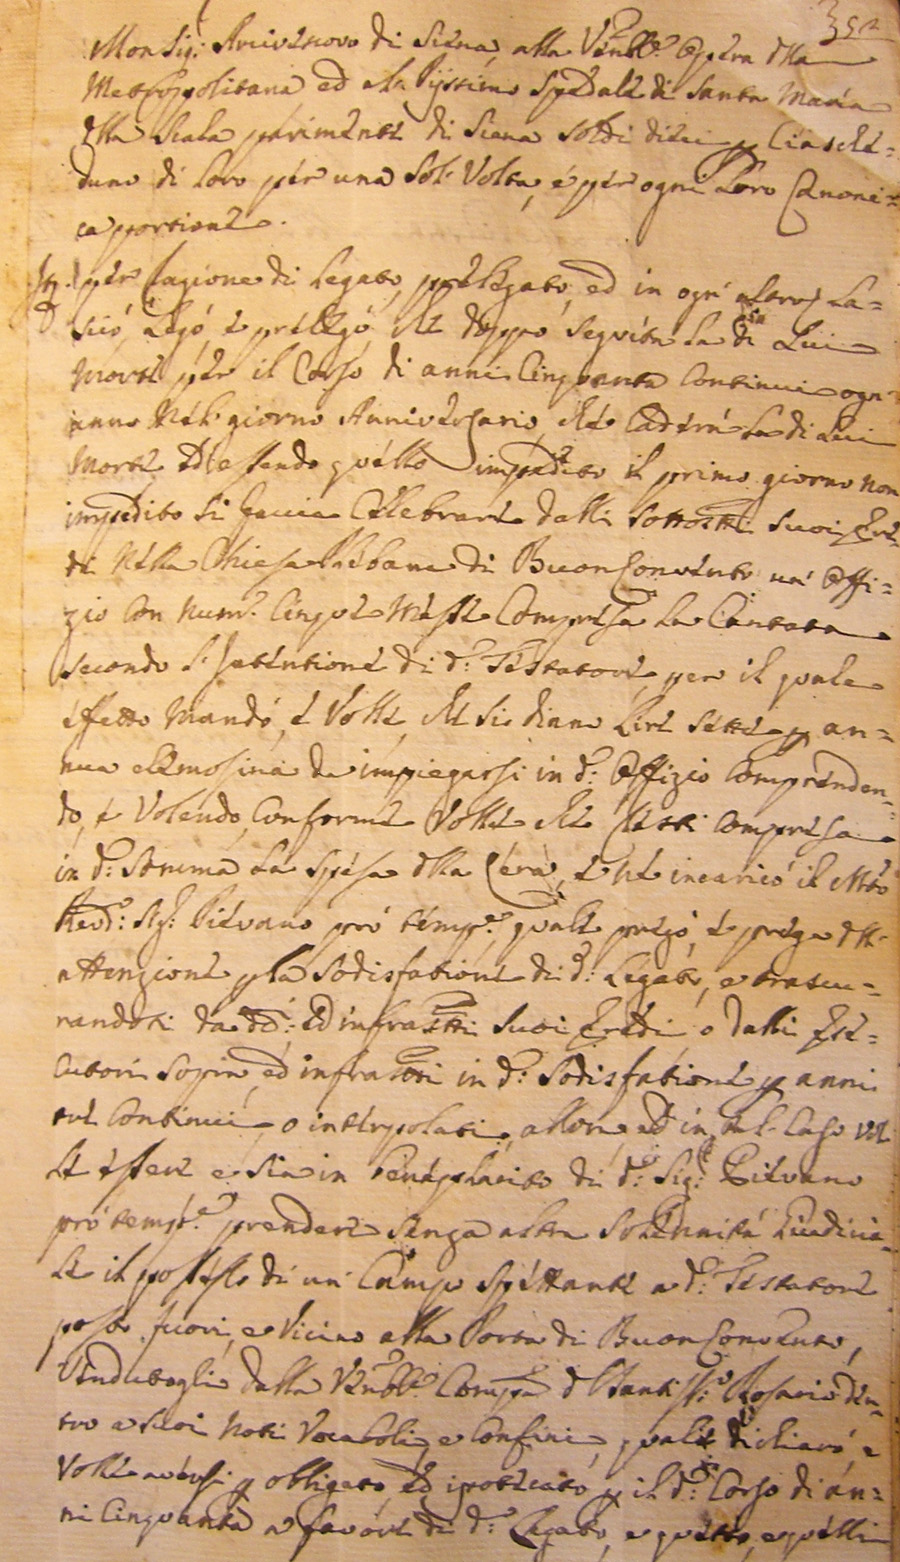 352
Mon Sig: Arcivescovo di Siena, alla Venble Opera dlla
Metropolitana ed al Pijssimo Spedale di Santa Maria
dlla Scala parimente di Siena soldi dieci p Ciasche=
duno di loro per una Sol Volta, e per ogni loro Canoni=
ca portione.
Ite. per ragione di Legato, prelegato, ed in ogni altro La=
sciò, Legò, e prelegò, che doppo seguita la di Lui
Morte per il Corso di anni Cinquanta Continui ogn
anno Nel giorno Anniversario, che Caderà la di Lui
Morte ed essendo quello impedito il primo giorno non
impedito si faccia Celebrare dalli sottotti suoi Ere
di Nella Chiesa Plebana di BuonConvento un' Offi=
zio Con Num. Cinque Messe Compresa La Cantata
secondo l'Intentione di d: Testatore per il quale
effetto Mandò, e Volle, che si diano Lire sette p an=
nua elemosina da impiegarsi in d: Offizio Comprenden=
do, e Volendo, Conforme Volle che resti Compresa
in d: Somma La spesa dlla Cera, e Ne incaricò il Mto
Revd: Sig: Pievano pro tempe. quale pregò, e prega dll
attenzione p la Sodisfatione di d: Legato, e trascu=
randosi da dd: ed infratti suoi Eredi o dalli Ese=
cutori sopra, ed infratti in d: Sodisfatione p anni
tre Continui, o interpolati, allora, ed in tal Caso vol
le essere e sia in beneplacito di d: Sig: Pievano
pro tempe. prendere senza altra Solennità Giudicia=
le il possesso di un' Campo spettante a d: Testatore
posto fuori, e Vicino alla Porta di BuonConvento,
Vendutogli dalla Venble Compa dl Santissi: Rosario den=
tro a suoi Noti Vocaboli, e Confini, quale dichiarò, e
Volle aversi p obbligato, ed ipotecato p il d: Corso di an=
ni Cinquanta a favore di d: Legato, e questo, e quelli